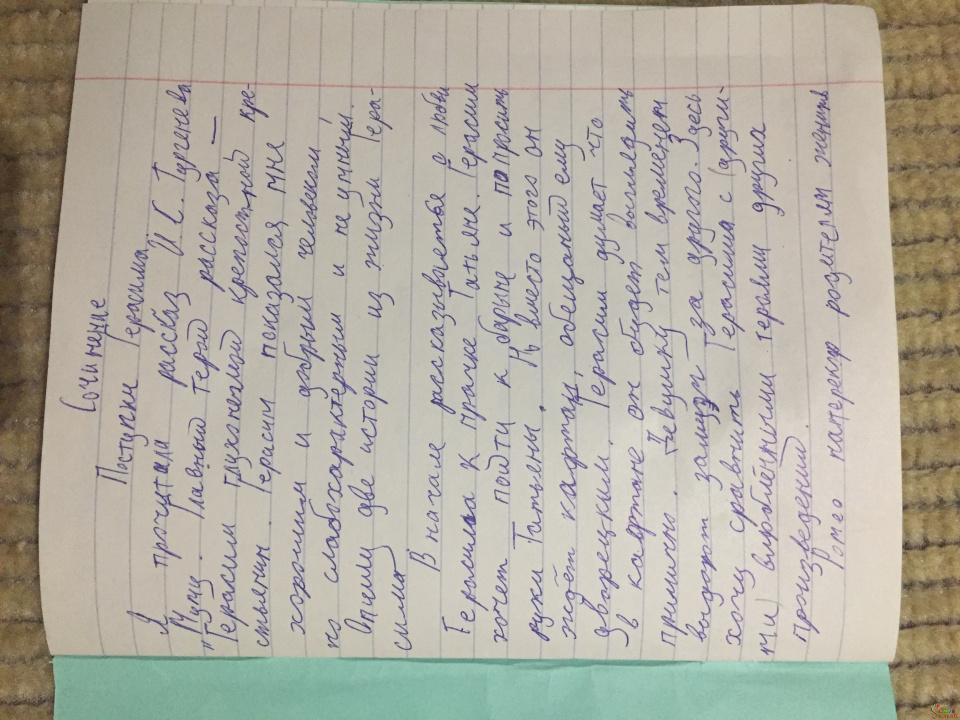 Сочинение
Поступки Герасима.
Я прочитала рассказ И.С. Тургенева
"Муму". Главный герой рассказа —
Герасим глухонемой крепостной кре-
стьянин. Герасим показался мне
хорошим и добрым человеком
но слабохарактерным и не умный.
Опишу две истории из жизни Гера-
сима
В начале рассказывается о любви
Герасима к прачке Татьяне. Герасим
хочет пойти к барыне и попросить
руки Татьяны. Но вместо этого он
ждёт кафтан, обещаный ему
дворецким. Герасим думает что
в кафтане он будет выглядить
прилично. Девушку тем временем
выдают замуж за другого. Здесь
хочу сравнить Герасима с (други-
ми) влюблёнными героями других
произведений.
Ромео наперекор родителям женился